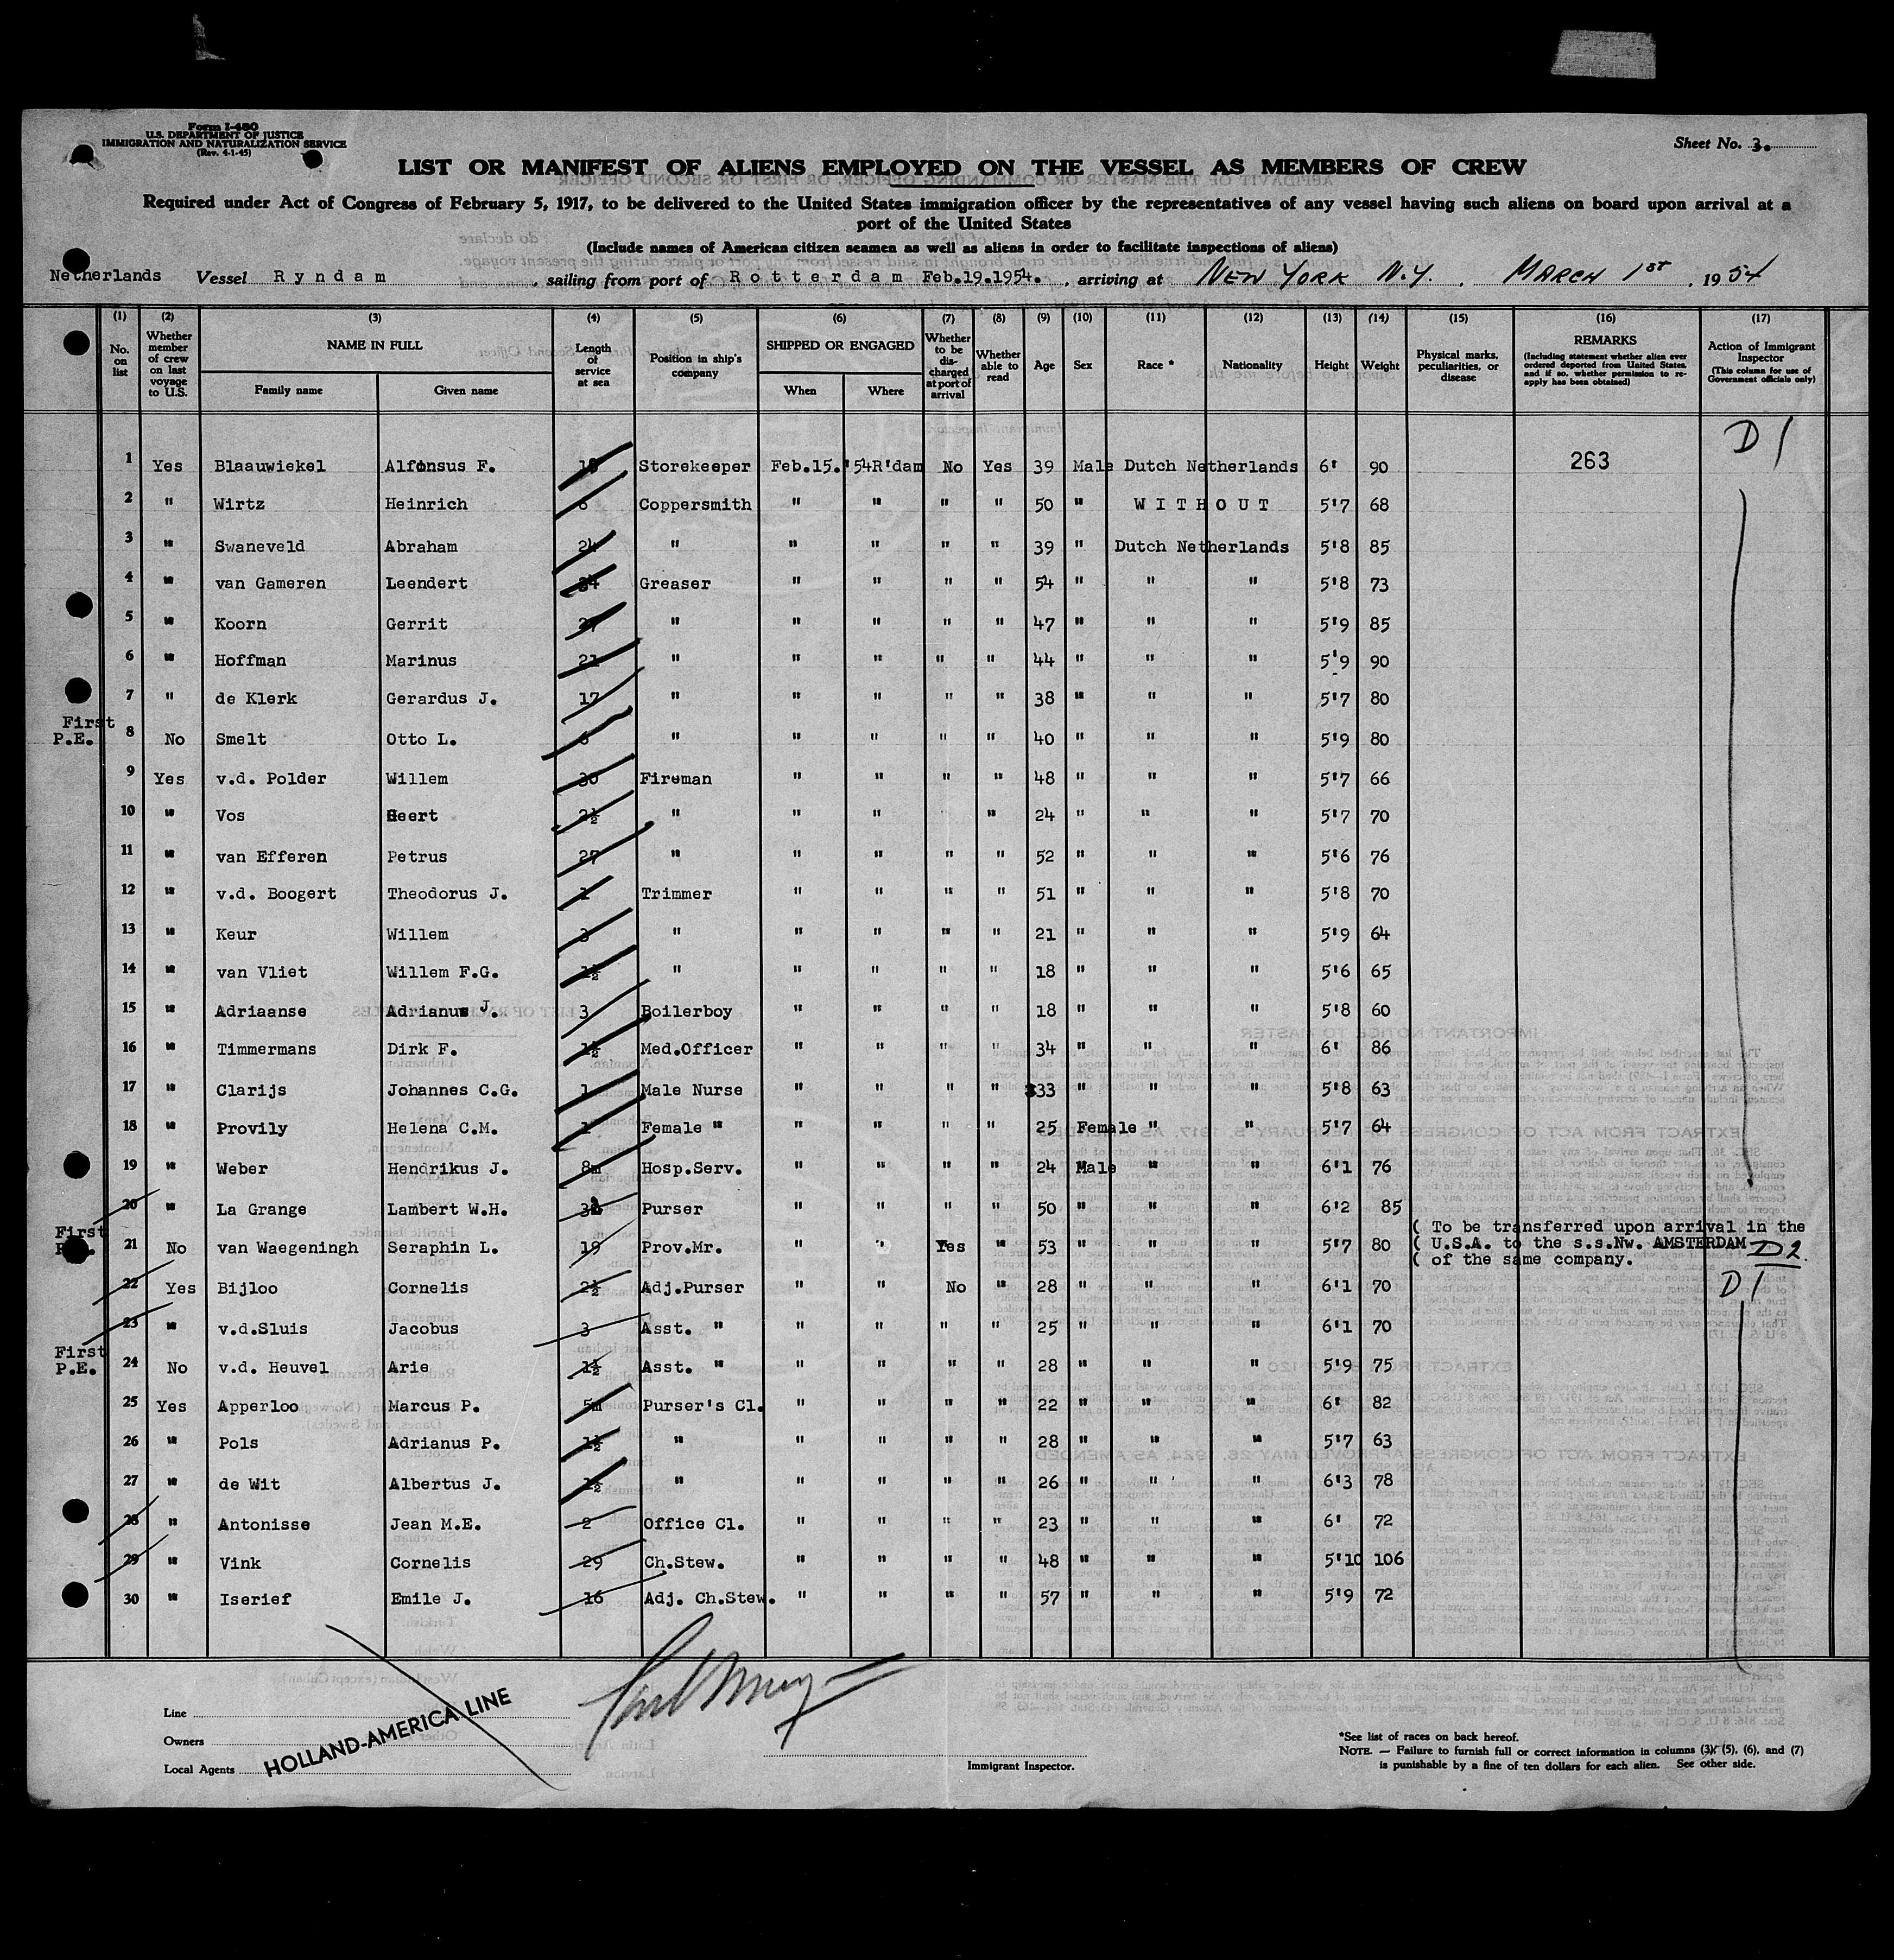 Form I-480
U.S. DEPARTMENT OF JUSTICE
IMMIGRATION AND NATURALIZATION SERVICE
(Rev. 4-1-45)
Sheet No. 3.
LIST OR MANIFEST OF ALIENS EMPLOYED ON THE VESSEL AS MEMBERS OF CREW
Required under Act of Congress of February 5, 1917, to be delivered to the United States immigration officer by the representatives of any vessel having such aliens on board upon arrival at a
port of the United States
(Include names of American citizen seamen as well as aliens in order to facilitate inspections of aliens)
Netherlands Vessel Ryndam, sailing from port of Rotterdam Feb.19.1954., arriving at NEW YORK N.Y., MARCH 1ST, 1954
(1) No. on list (2) Whether member of crew on last voyage to U.S. (3) NAME IN FULL Family name Given name (4) Length of service at sea (5) Position in ship's company (6) SHIPPED OR ENGAGED When Where (7) Whether to be discharged at port of arrival (8) Whether able to read (9) Age (10) Sex (11) Race * (12) Nationality (13) Height (14) Weight (15) Physical marks, peculiarities, or disease (16) REMARKS (Including statement whether alien ever ordered deported from United States, and if so, whether permission to re-apply has been obtained) (17) Action of Immigrant Inspector (This column for use of Government officials only)
1 Yes Blaauwiekel Alfonsus F. Storekeeper Feb.15.'54 R'dam No Yes 39 Male Dutch Netherlands 6' 90 263 D1
2 " Wirtz Heinrich Coppersmith " " " " 50 " WITHOUT 5'7 68
3 " Swaneveld Abraham 24 " " " " " 39 " Dutch Netherlands 5'8 85
4 " van Gameren Leendert Greaser " " " " 54 " " " 5'8 73
5 " Koorn Gerrit 27 " " " " " 47 " " " 5'9 85
6 " Hoffman Marinus 21 " " " " " 44 " " " 5'9 90
7 " de Klerk Gerardus J. 17 " " " " " 38 " " " 5'7 80
First P.E. 8 No Smelt Otto L. " " " " " 40 " " " 5'9 80
9 Yes v.d. Polder Willem 30 Fireman " " " " 48 " " " 5'7 66
10 " Vos Geert 2½ " " " " 24 " " " 5'7 70
11 " van Efferen Petrus 27 " " " " " 52 " " " 5'6 76
12 " v.d. Boogert Theodorus J. 1 Trimmer " " " " 51 " " " 5'8 70
13 " Keur Willem 3 " " " " " 21 " " " 5'9 64
14 " van Vliet Willem F.G. 1½ " " " " " 18 " " " 5'6 65
15 " Adriaanse Adrianus J. 3 Boilerboy " " " " 18 " " " 5'8 60
16 " Timmermans Dirk F. 1½ Med.Officer " " " " 34 " " " 6' 86
17 " Clarijs Johannes C.G. 1 Male Nurse " " " " 33 " " " 5'8 63
18 " Provily Helena C.M. 1 Female " " " " " 25 Female " " 5'7 64
19 " Weber Hendrikus J. 8m Hosp.Serv. " " " " 24 Male " " 6'1 76
20 " La Grange Lambert W.H. Purser " " " " 50 " " " 6'2 85
First 21 No van Waegeningh Seraphin L. 19 Prov.Mr. " " Yes " 53 " " " 5'7 80 ( To be transferred upon arrival in the
( U.S.A. to the s.s.Nw. AMSTERDAM D2
( of the same company.
22 Yes Bijloo Cornelis 2½ Adj.Purser " " No " 28 " " " 6'1 70 D1
23 " v.d.Sluis Jacobus 3 Asst. " " " " " 25 " " " 6'1 70
First P.E. 24 No v.d. Heuvel Arie 1½ Asst. " " " " " 28 " " " 5'9 75
25 Yes Apperloo Marcus P. 5m Purser's Cl. " " " " 22 " " " 6' 82
26 " Pols Adrianus P. 1½ " " " " " 28 " " " 5'7 63
27 " de Wit Albertus J. 1½ " " " " " 26 " " " 6'3 78
28 " Antonisse Jean M.E. 2 Office Cl. " " " " 23 " " " 6' 72
29 " Vink Cornelis 29 Ch.Stew. " " " " 48 " " " 5'10 106
30 " Iserief Emile J. 16 Adj. Ch.Stew. " " " " 57 " " " 5'9 72
Line
Owners
Local Agents
HOLLAND-AMERICA LINE
Immigrant Inspector.
*See list of races on back hereof.
NOTE. — Failure to furnish full or correct information in columns (3), (5), (6), and (7)
is punishable by a fine of ten dollars for each alien. See other side.